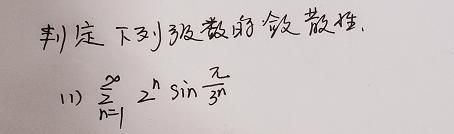 判定下列级数的敛散性.
(1) ∞∑n=1 2^n sin π/3^n